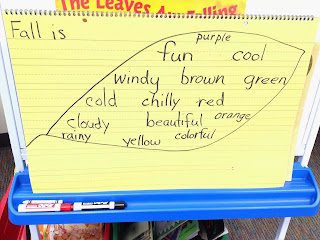 The Leaves Are Falling
Fall is
purple
fun cool
windy brown green
cold chilly red
cloudy beautiful orange
rainy yellow colorful
EXPO